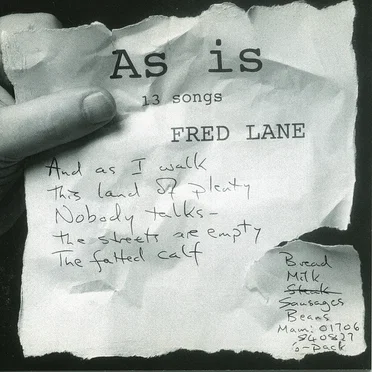 As is
13 songs
FRED LANE
And as I walk
this land of plenty
Nobody talks-
the streets are empty
The fatted calf
Bread
Milk
Steak
Sausages
Beans
Mam: 01706
840827
'o-Pack